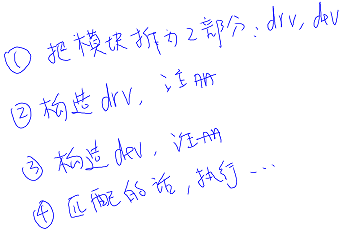 ① 把模块拆为2部分:drv, dev
② 构造drv, 注册
③ 构造dev, 注册
④ 匹配的话,执行…